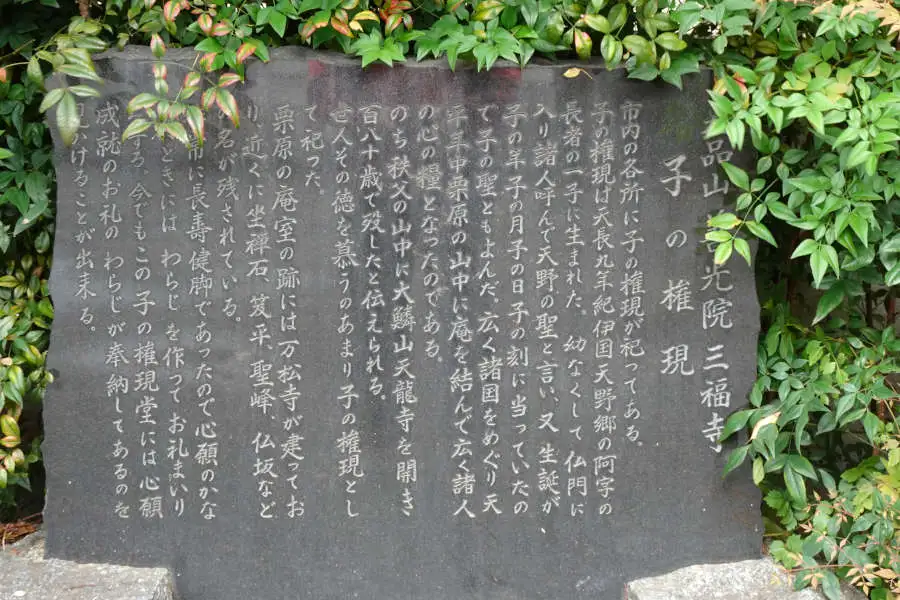 品山 光院 三福寺
子の権現
市内の各所に子の権現が祀ってある。
子の権現は天長九年紀伊国天野郷の阿字の
長者の一子に生まれた。幼なくして仏門に
入り諸人呼んで天野の聖と言い、又生誕が、
子の年子の月子の日子の刻に当っていたの
で子の聖ともよんだ。広く諸国をめぐり天
年中栗原の山中に庵を結んで広く諸人
の心の糧となったのである。
のち秩父の山中に大鱗山天龍寺を開き
百八十歳で歿したと伝えられる。
世人その徳を慕うのあまり子の権現とし
て祀った。
栗原の庵室の跡には万松寺が建ってお
り、近くに坐禅石、笈平、聖峰、仏坂など
の名が残されている。
常に長寿健脚であったので心願のかな
ときには わらじ を作ってお礼まいり
する、今でもこの子の権現堂には心願
成就のお札の わらじが奉納してあるのを
見かけることが出来る。